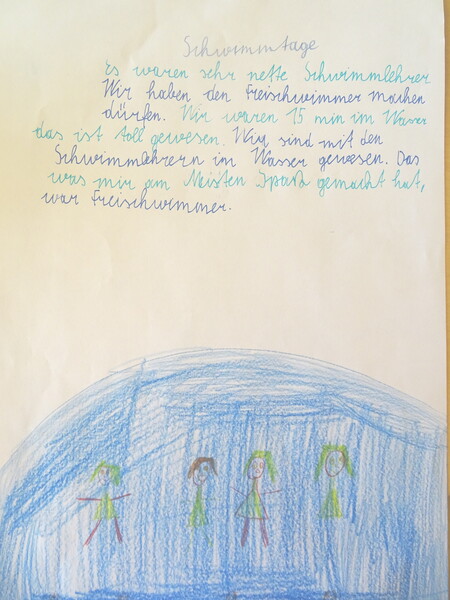 Schwimmtage
Es waren sehr nette Schwimmlehrer
Wir haben den Freischwimmer machen
dürfen. Wir waren 15 min im Wasser
das ist toll gewesen. Wir sind mit den
Schwimmlehrern im Wasser gewesen. Das
was mir am Meisten Spaß gemacht hat,
war Freischwimmer.